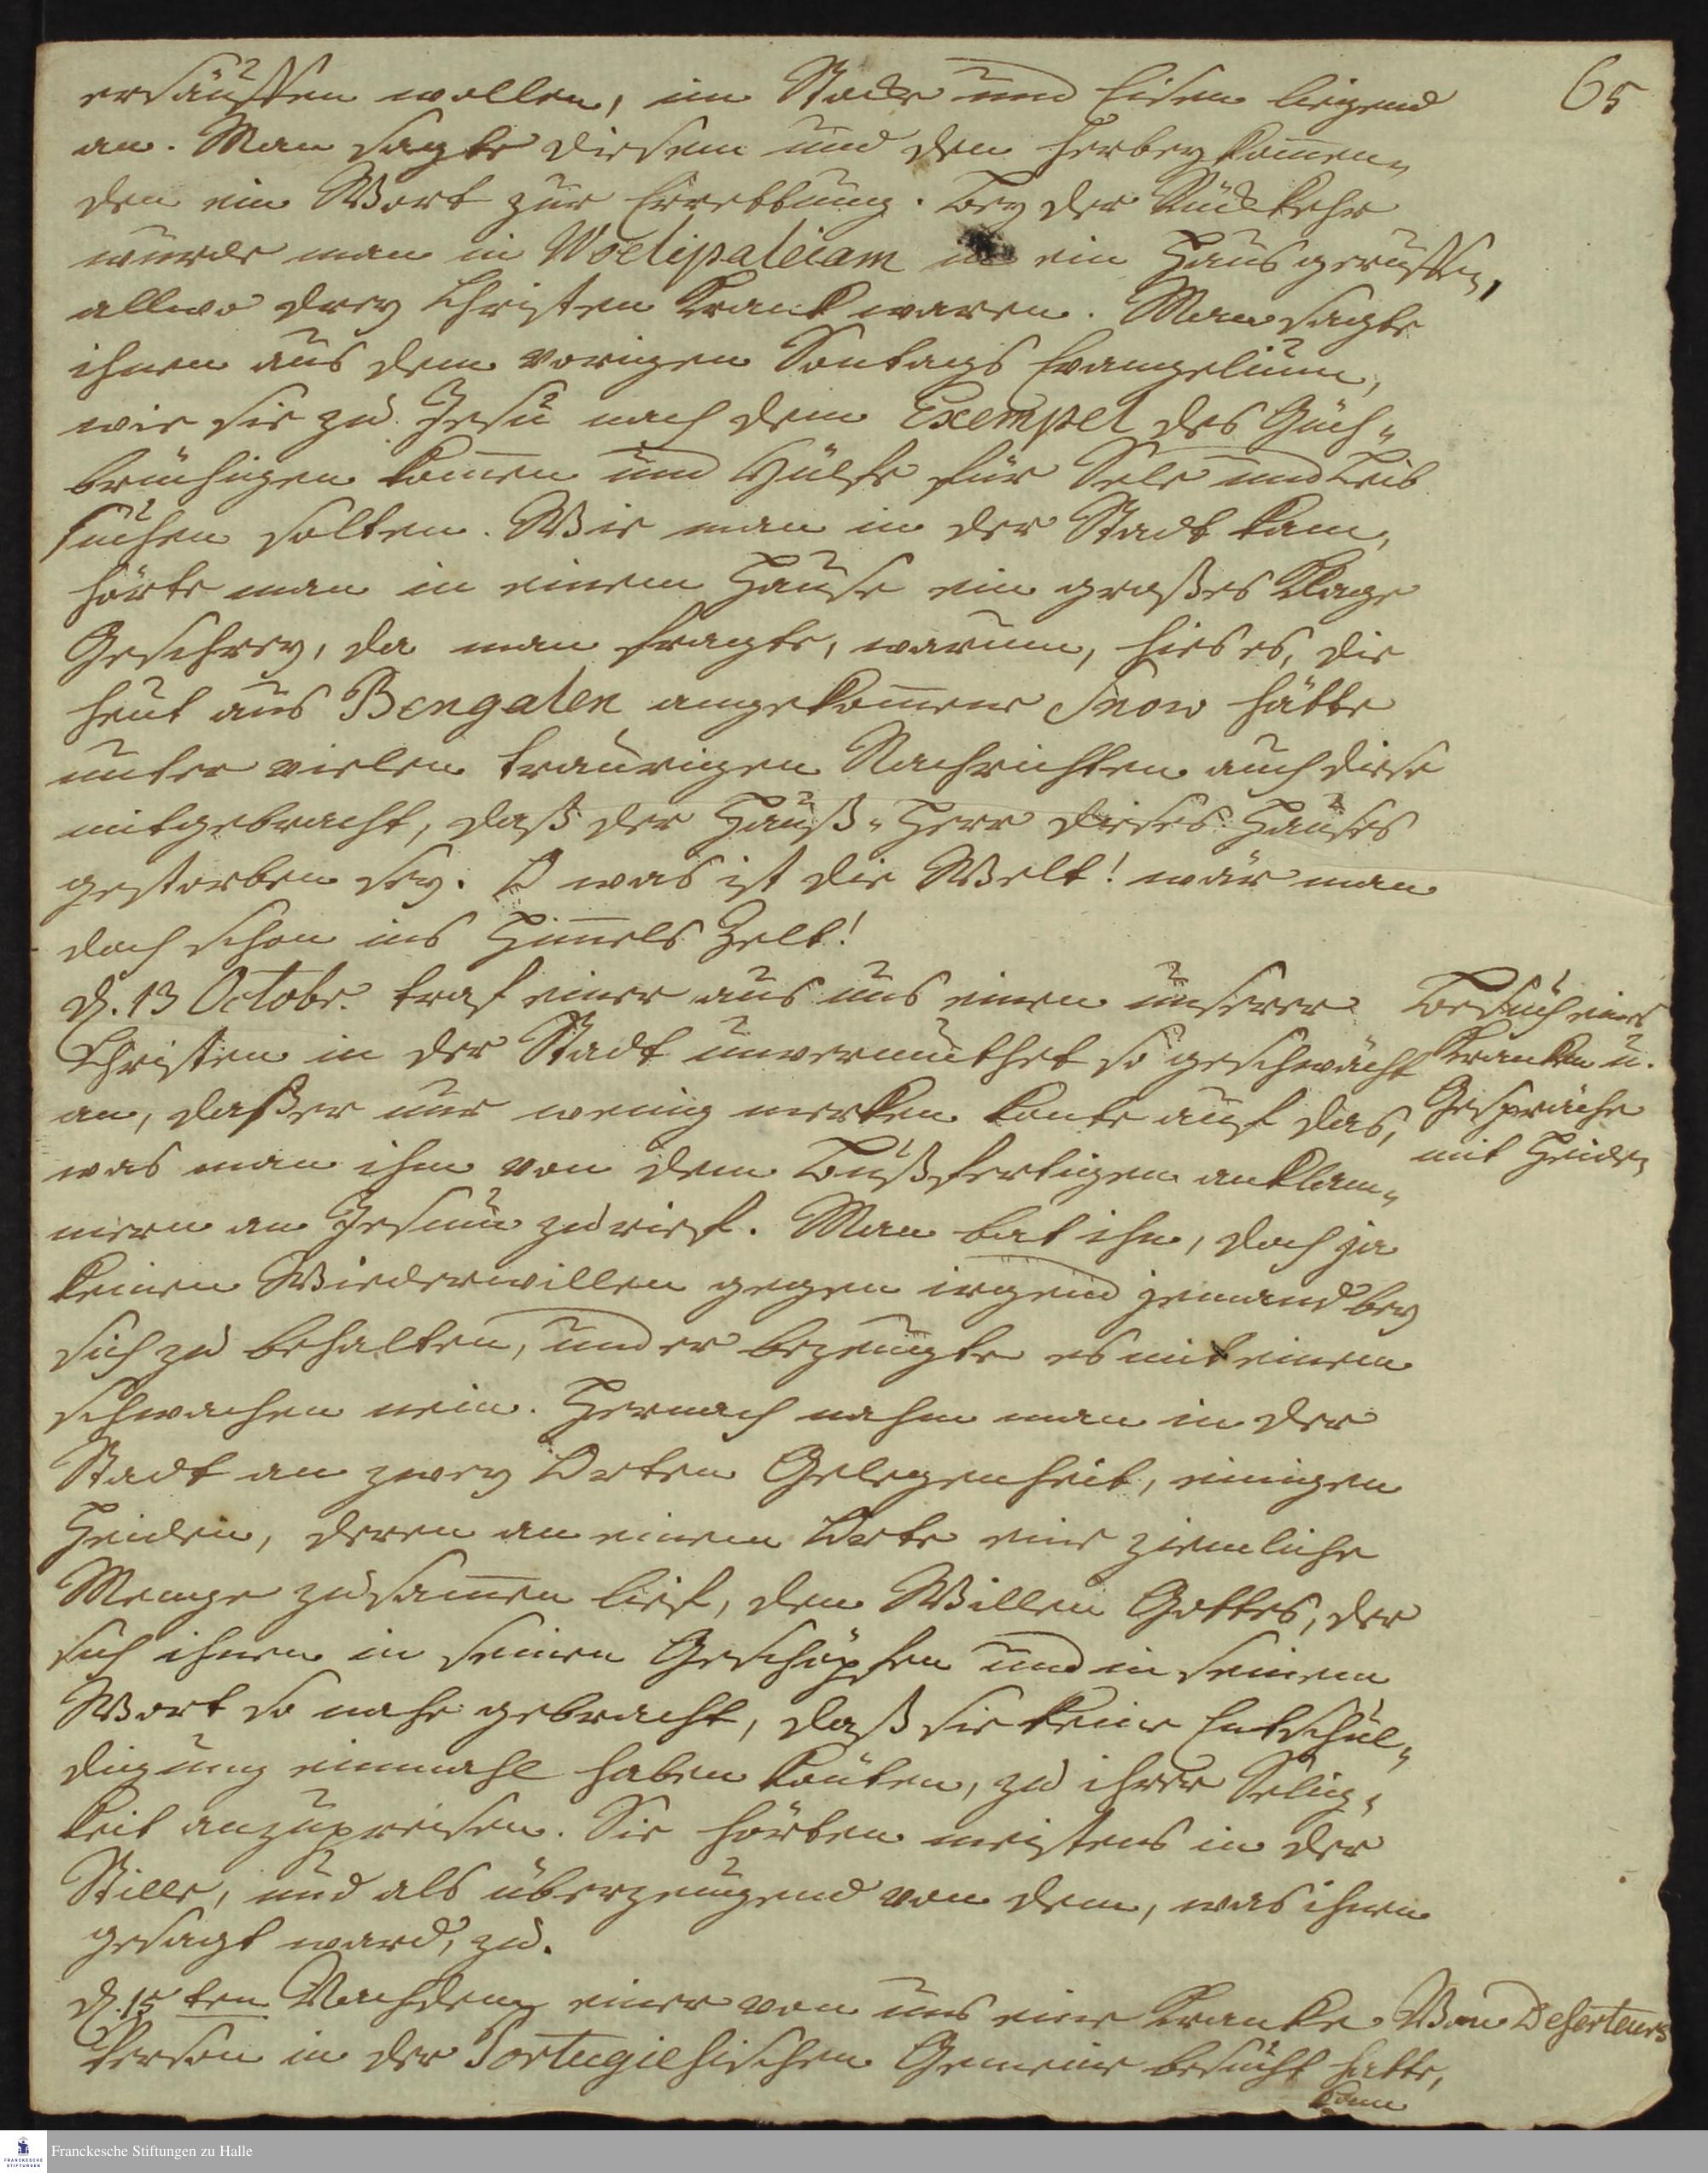 65
ersäuffen wollen, im Stocke und Eisen liegend
an. Man sagte diesem und den herbeykom̄en„
den ein Wort zur Errettung. Bey der Rückkehr
wurde man in Woelipaleiam in ein Haus geruffen,
allwo drey Christen krank waren. Man sagte
ihnen aus dem vorigen Sontags Evangelium,
wie sie zu Jesu nach dem Exempel des Gich„
brüchigen kom̄en und Hülfe für Sele und Leib
suchen solten. Wie man in der Stadt kam,
hörte man in einem Hause ein großes Klage
Geschrey, da man fragte, warum, hies es, die
heut aus Bengalen angekom̄ene Snow hätte
unter vielen traurigen Nachrichten auch diese
mitgebracht, daß der Hauß-Herr dieses Hauses
gestorben sey. O was ist die Welt! wär man
doch schon ins Him̄els Zelt!
d. 13 Octobr. traf einer aus uns einen unserer
Christen in der Stadt unvermuthet so geschwächt
an, daß er nur wenig merken konte auf das,
was man ihm von dem Bußfertigen anklam„
mern an Jesum zurief. Man bat ihn, doch ja
keinen Wiederwillen gegen irgend jemand bey
sich zu behalten, und er bezeugte es mit einem
schwachen nein. Hernach nahm man in der
Stadt an zwey Orten Gelegenheit, einigen
Heiden, deren an einem Orte eine ziemliche
Menge zusam̄en lief, den Willen Gottes, der
sich ihnen in seinen Geschöpfen und in seinem
Wort so nahe gebracht, daß sie keine Entschul„
digung einmahl haben könten, zu ihrer Selig„
keit anzupreisen. Sie hörten meistens in der
Stille, und als überzeugend von dem, was ihnen
gesagt ward, zu.
d. 15 ten Nachdem einer von uns eine kranke
Person in der Portugiesischen Gemeine besucht hatte,
kam
Besuch eines
Kranken u.
Gespräche
mit Heiden
Von Deserteurs
Franckesche Stiftungen zu Halle
FRANCKESCHE
STIFTUNGEN